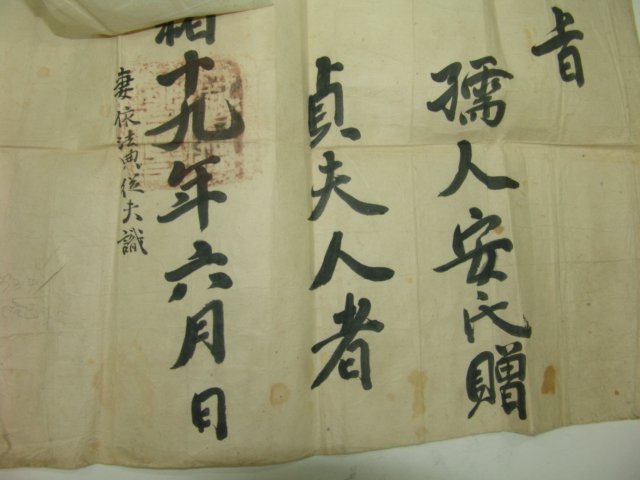 旨
孺人安氏贈
貞夫人者
十九年六月日
妻依法典從夫識